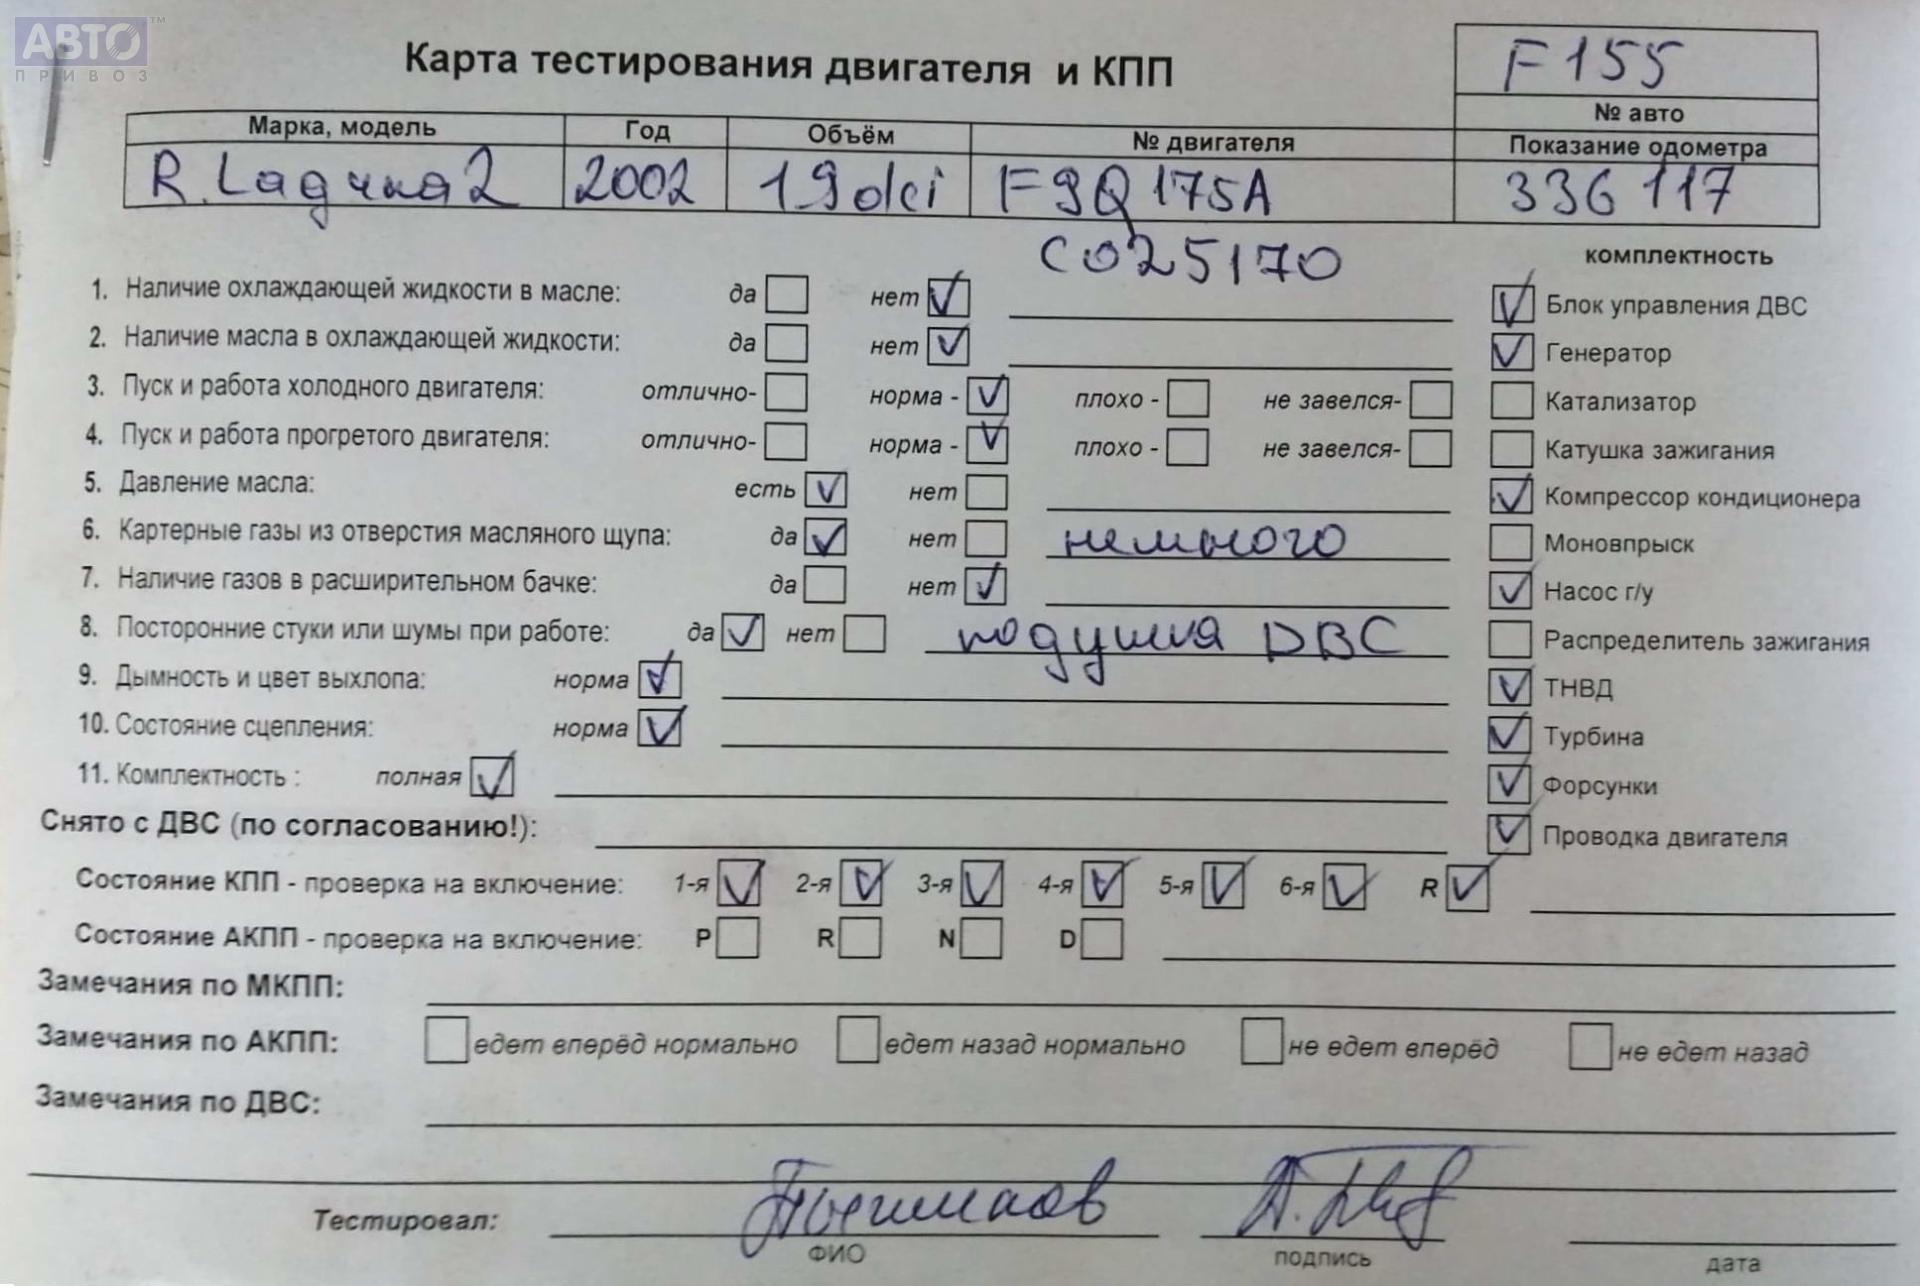 АВТО™
ПРИВОЗ
Карта тестирования двигателя и КПП
F155
№ авто
Марка, модель Год Объём № двигателя Показание одометра
R. Laguna 2 2002 1.9 dci F9Q 175A 336 117
C025170
комплектность
1. Наличие охлаждающей жидкости в масле: да нет ✓ ✓ Блок управления ДВС
2. Наличие масла в охлаждающей жидкости: да нет ✓ ✓ Генератор
3. Пуск и работа холодного двигателя: отлично- норма - ✓ плохо - не завелся- Катализатор
4. Пуск и работа прогретого двигателя: отлично- норма - ✓ плохо - не завелся- Катушка зажигания
5. Давление масла: есть ✓ нет ✓ Компрессор кондиционера
6. Картерные газы из отверстия масляного щупа: да ✓ нет немного Моновпрыск
7. Наличие газов в расширительном бачке: да нет ✓ ✓ Насос г/у
8. Посторонние стуки или шумы при работе: да ✓ нет подушка ДВС Распределитель зажигания
9. Дымность и цвет выхлопа: норма ✓ ✓ ТНВД
10. Состояние сцепления: норма ✓ ✓ Турбина
11. Комплектность : полная ✓ ✓ Форсунки
Снято с ДВС (по согласованию!): ✓ Проводка двигателя
Состояние КПП - проверка на включение: 1-я ✓ 2-я ✓ 3-я ✓ 4-я ✓ 5-я ✓ 6-я ✓ R ✓
Состояние АКПП - проверка на включение: P R N D
Замечания по МКПП:
Замечания по АКПП: едет вперёд нормально едет назад нормально не едет вперёд не едет назад
Замечания по ДВС:
Тестировал:
ФИО подпись дата